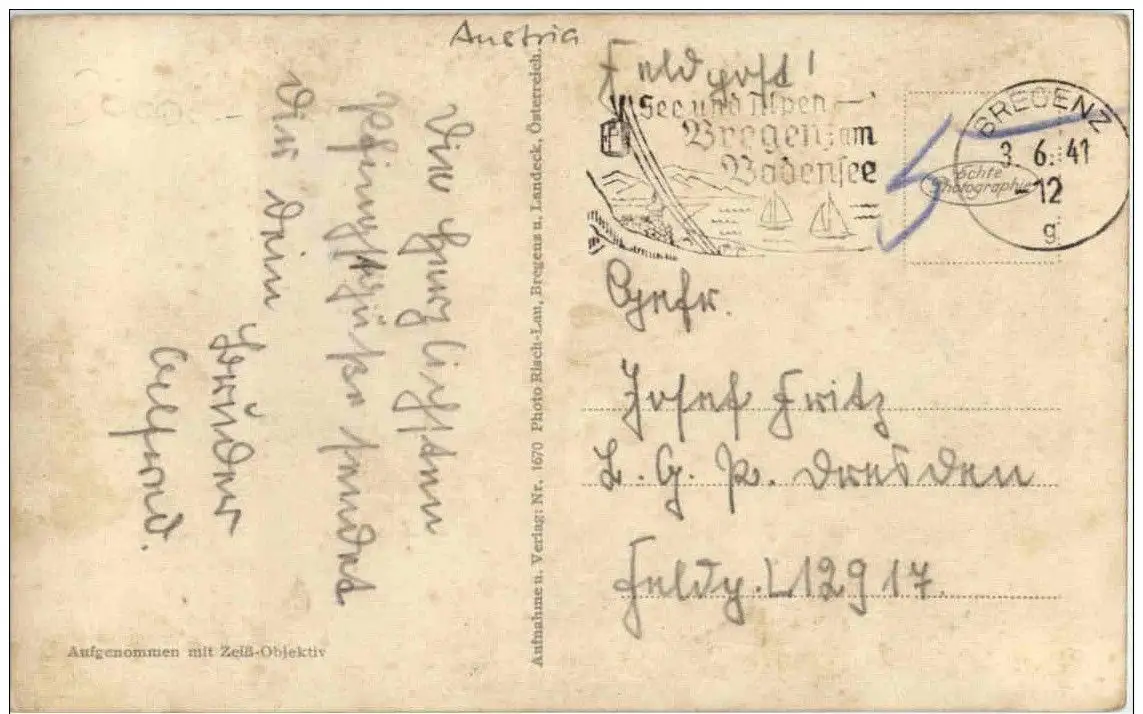 Austria
Die herzlichsten
Pfingstgrüße sendet
Dir dein
Bruder
Alfred.
Aufgenommen mit Zeiß-Objektiv
Aufnahme u. Verlag: Nr. 1670 Photo Risch-Lau, Bregenz u. Landeck, Österreich.
Feldpost!
See und Alpen —
Bregenz am
Bodensee
BREGENZ
3. 6. 41
-12
g
echte
Photographie
Gefr.
Josef Fritz
L. G. P. Dresden
Feldp. L 12917.